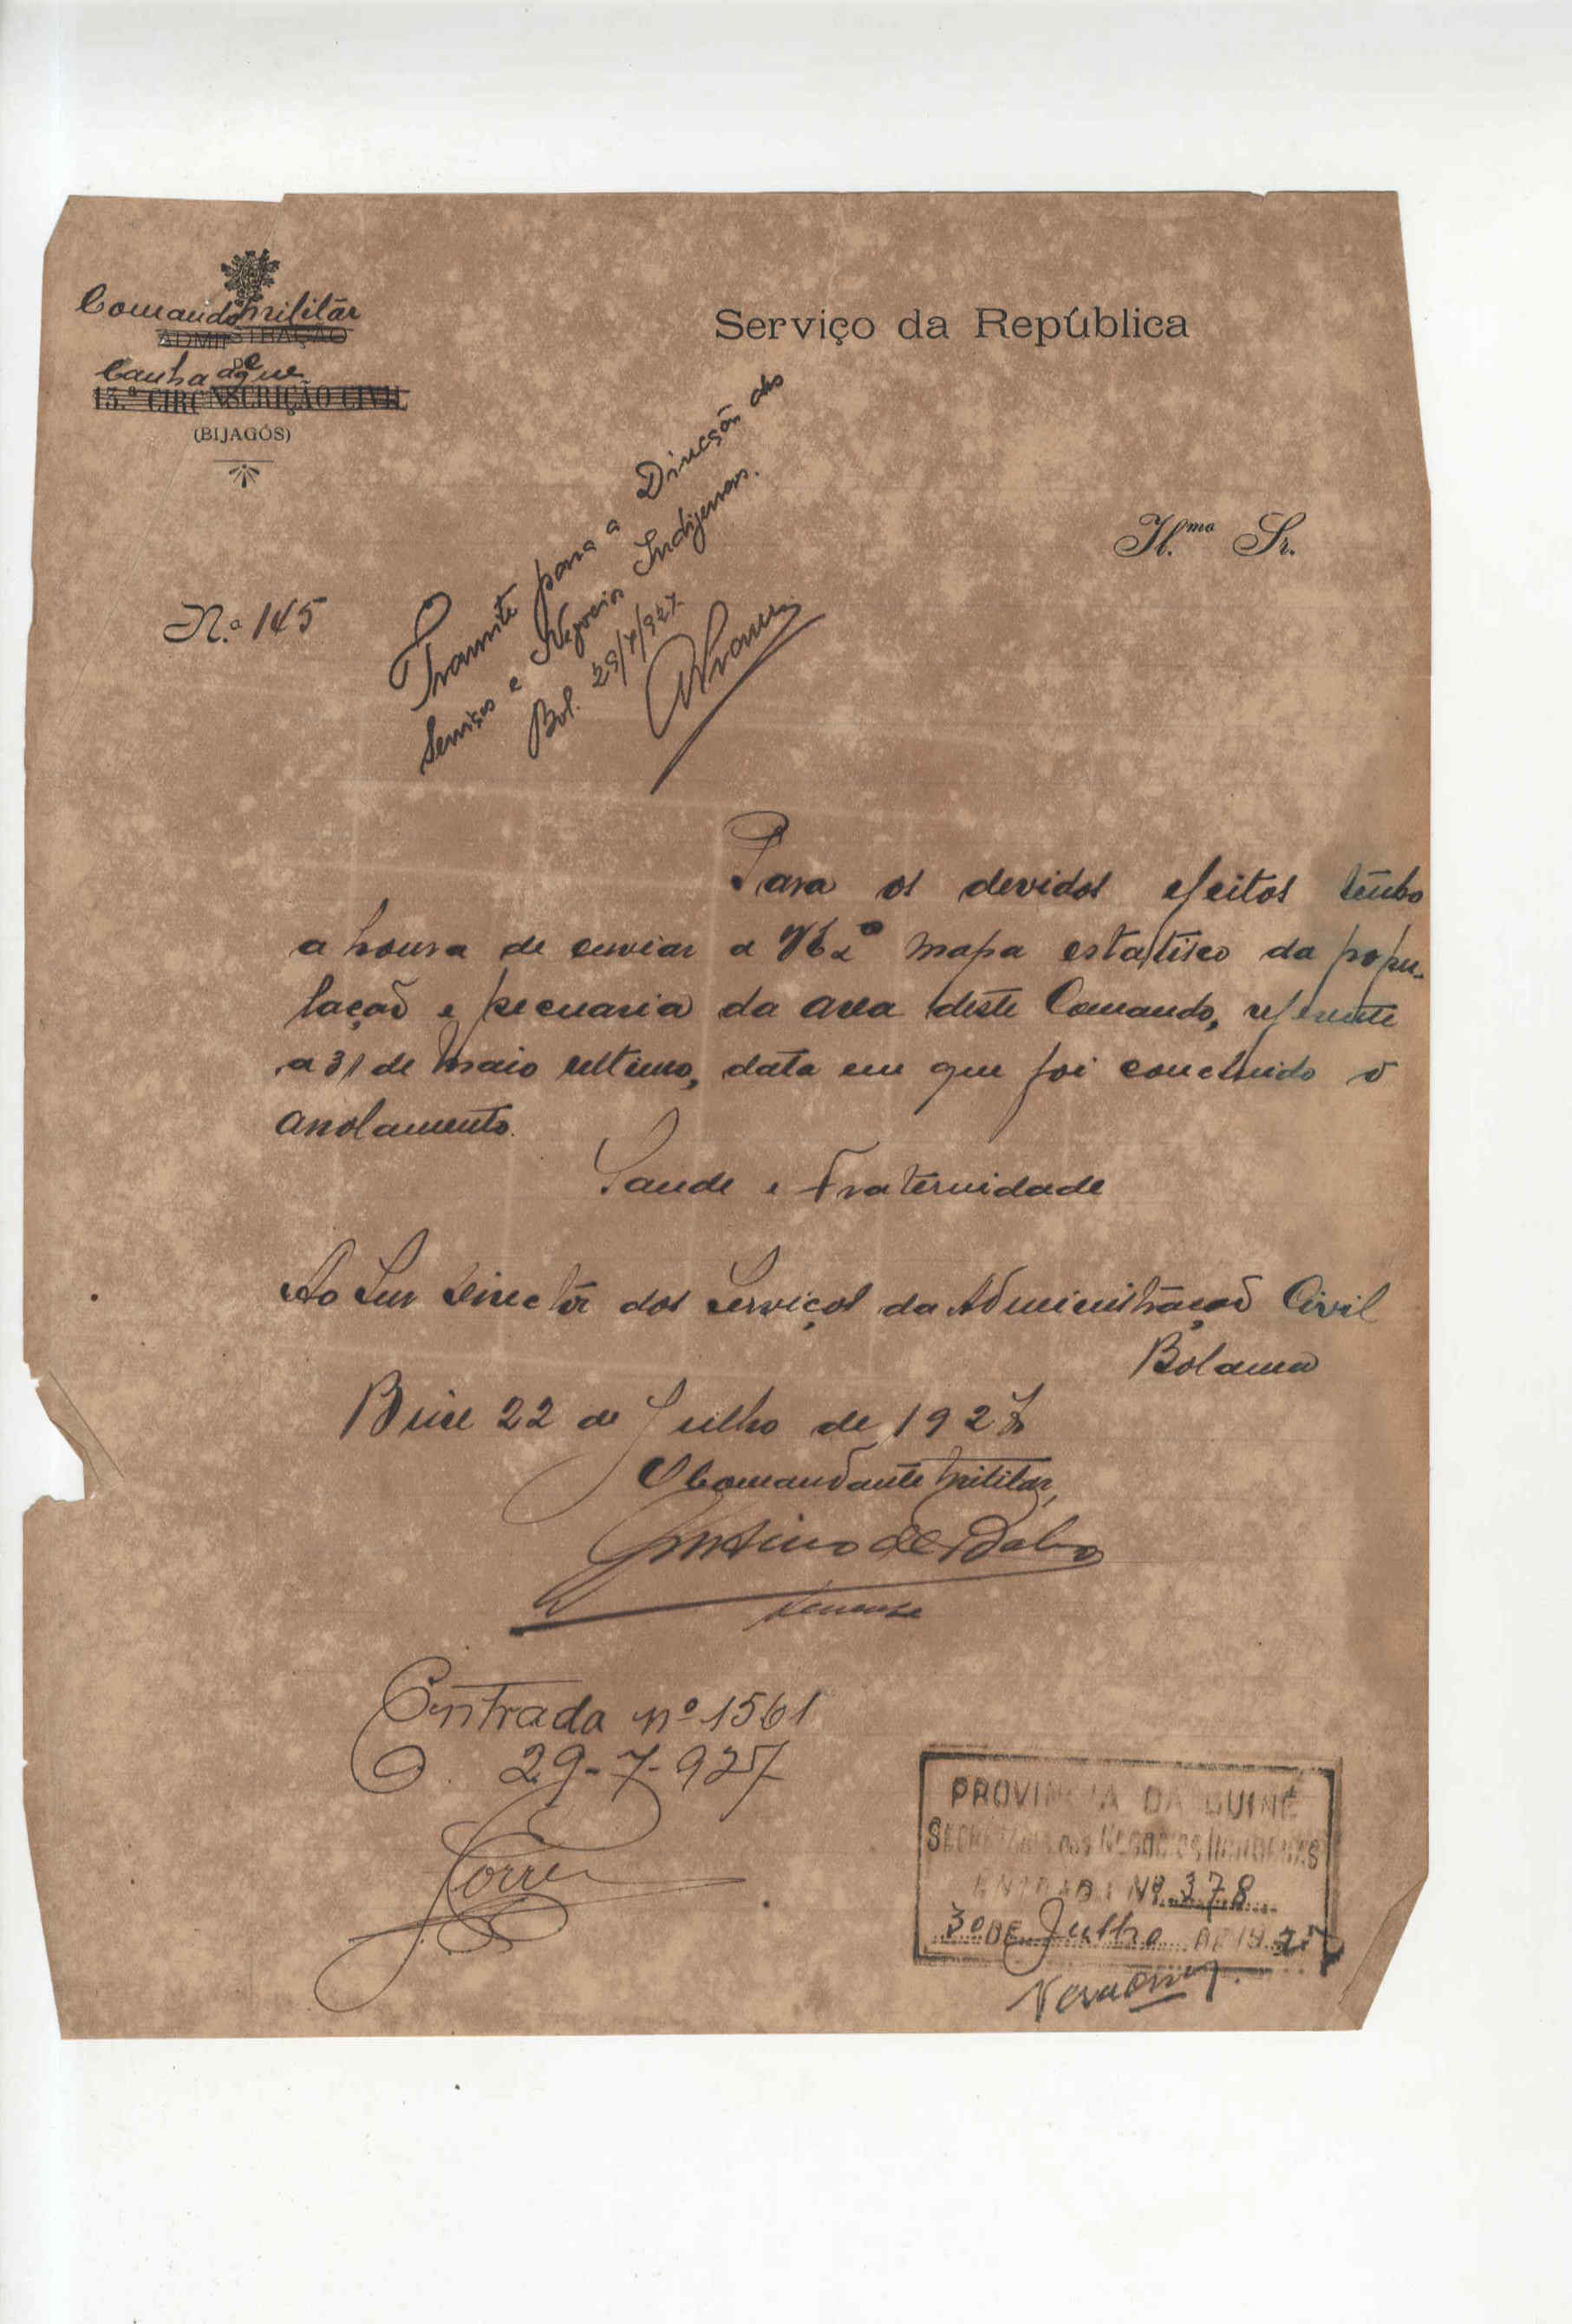 Comando militar
ADMINISTRAÇÃO
DE
Canhaque
15.ª CIRCUNSCRIÇÃO CIVIL
(BIJAGÓS)
Serviço da República
Il.mo Sr.
N.º 145
Transite para a Direcção dos
Serviços e Negocios Indigenas.
Bol. 29/7/927
Para os devidos efeitos tenho
a honra de enviar a V. Ex.ª mapa estatistico da popu-
lação e pecuaria da area deste Comando, referente
a 31 de Maio ultimo, data em que foi concluido o
arrolamento.
Saude e Fraternidade
Ao Snr Director dos Serviços da Administração Civil
Bolama
Bine 22 de Julho de 1927
O Comandante Militar,
tenente
Entrada nº 1561
29-7-927
Torres
PROVINCIA DA GUINÉ
SECRETARIA DOS NEGOCIOS INDIGENAS
ENTRADA Nº 378
30 DE Julho DE 1927